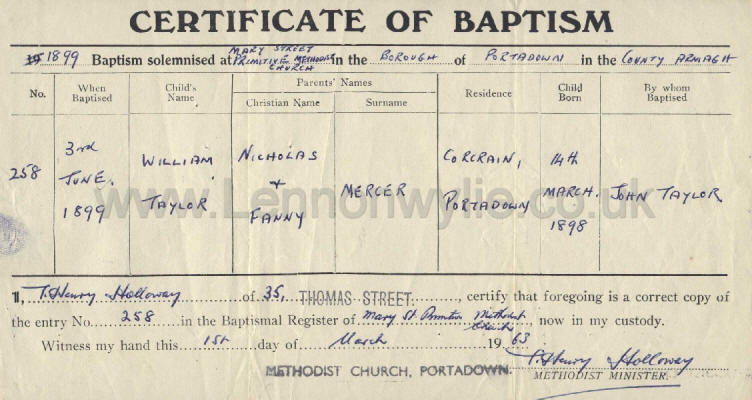 CERTIFICATE OF BAPTISM
1899 Baptism solemnised at MARY STREET PRIMITIVE METHODIST CHURCH in the BOROUGH of PORTADOWN in the COUNTY ARMAGH
No. When Baptised Child's Name Parents' Names Christian Name Surname Residence Child Born By whom Baptised
258 3rd JUNE. 1899 WILLIAM TAYLOR NICHOLAS + FANNY MERCER CORCRAIN, PORTADOWN 14th MARCH. 1898 JOHN TAYLOR
www.Lennonwylie.co.uk
I, T. Henry Holloway of 35, THOMAS STREET, certify that foregoing is a correct copy of
the entry No. 258 in the Baptismal Register of Mary St. Primitive Methodist Church, now in my custody.
Witness my hand this 1st day of March 1963
T. Henry Holloway
METHODIST CHURCH, PORTADOWN. METHODIST MINISTER.